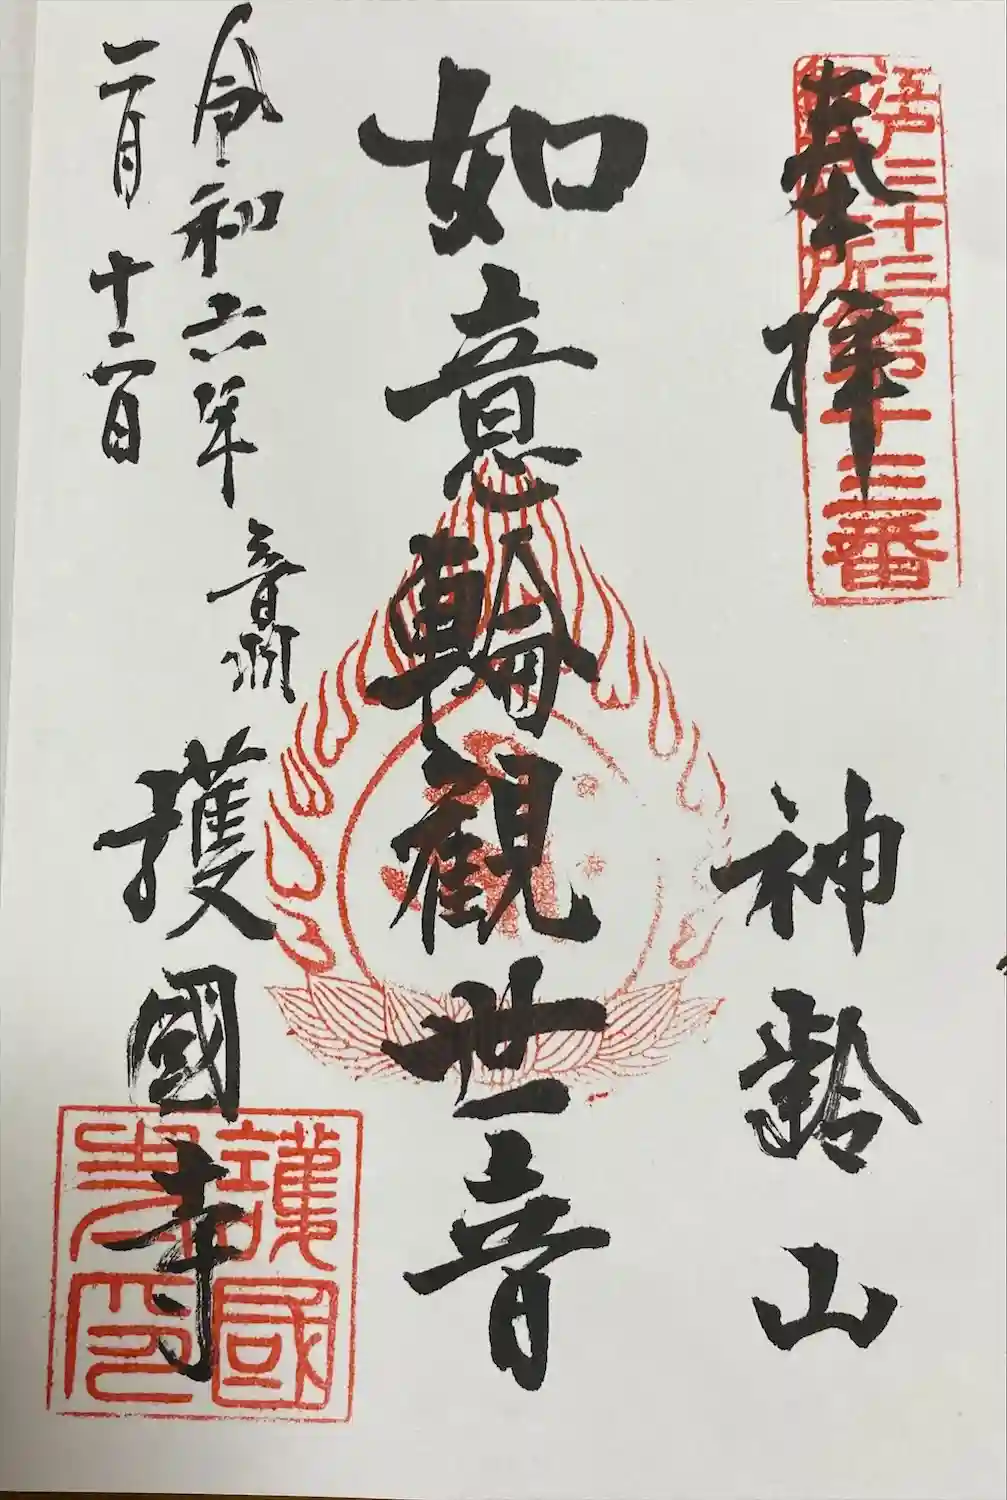 江戸三十三
観音札所
第十三番
奉拝
神齢山
如意輪観世音
令和六年
二月十二日
音羽
護國寺
護國
寺印